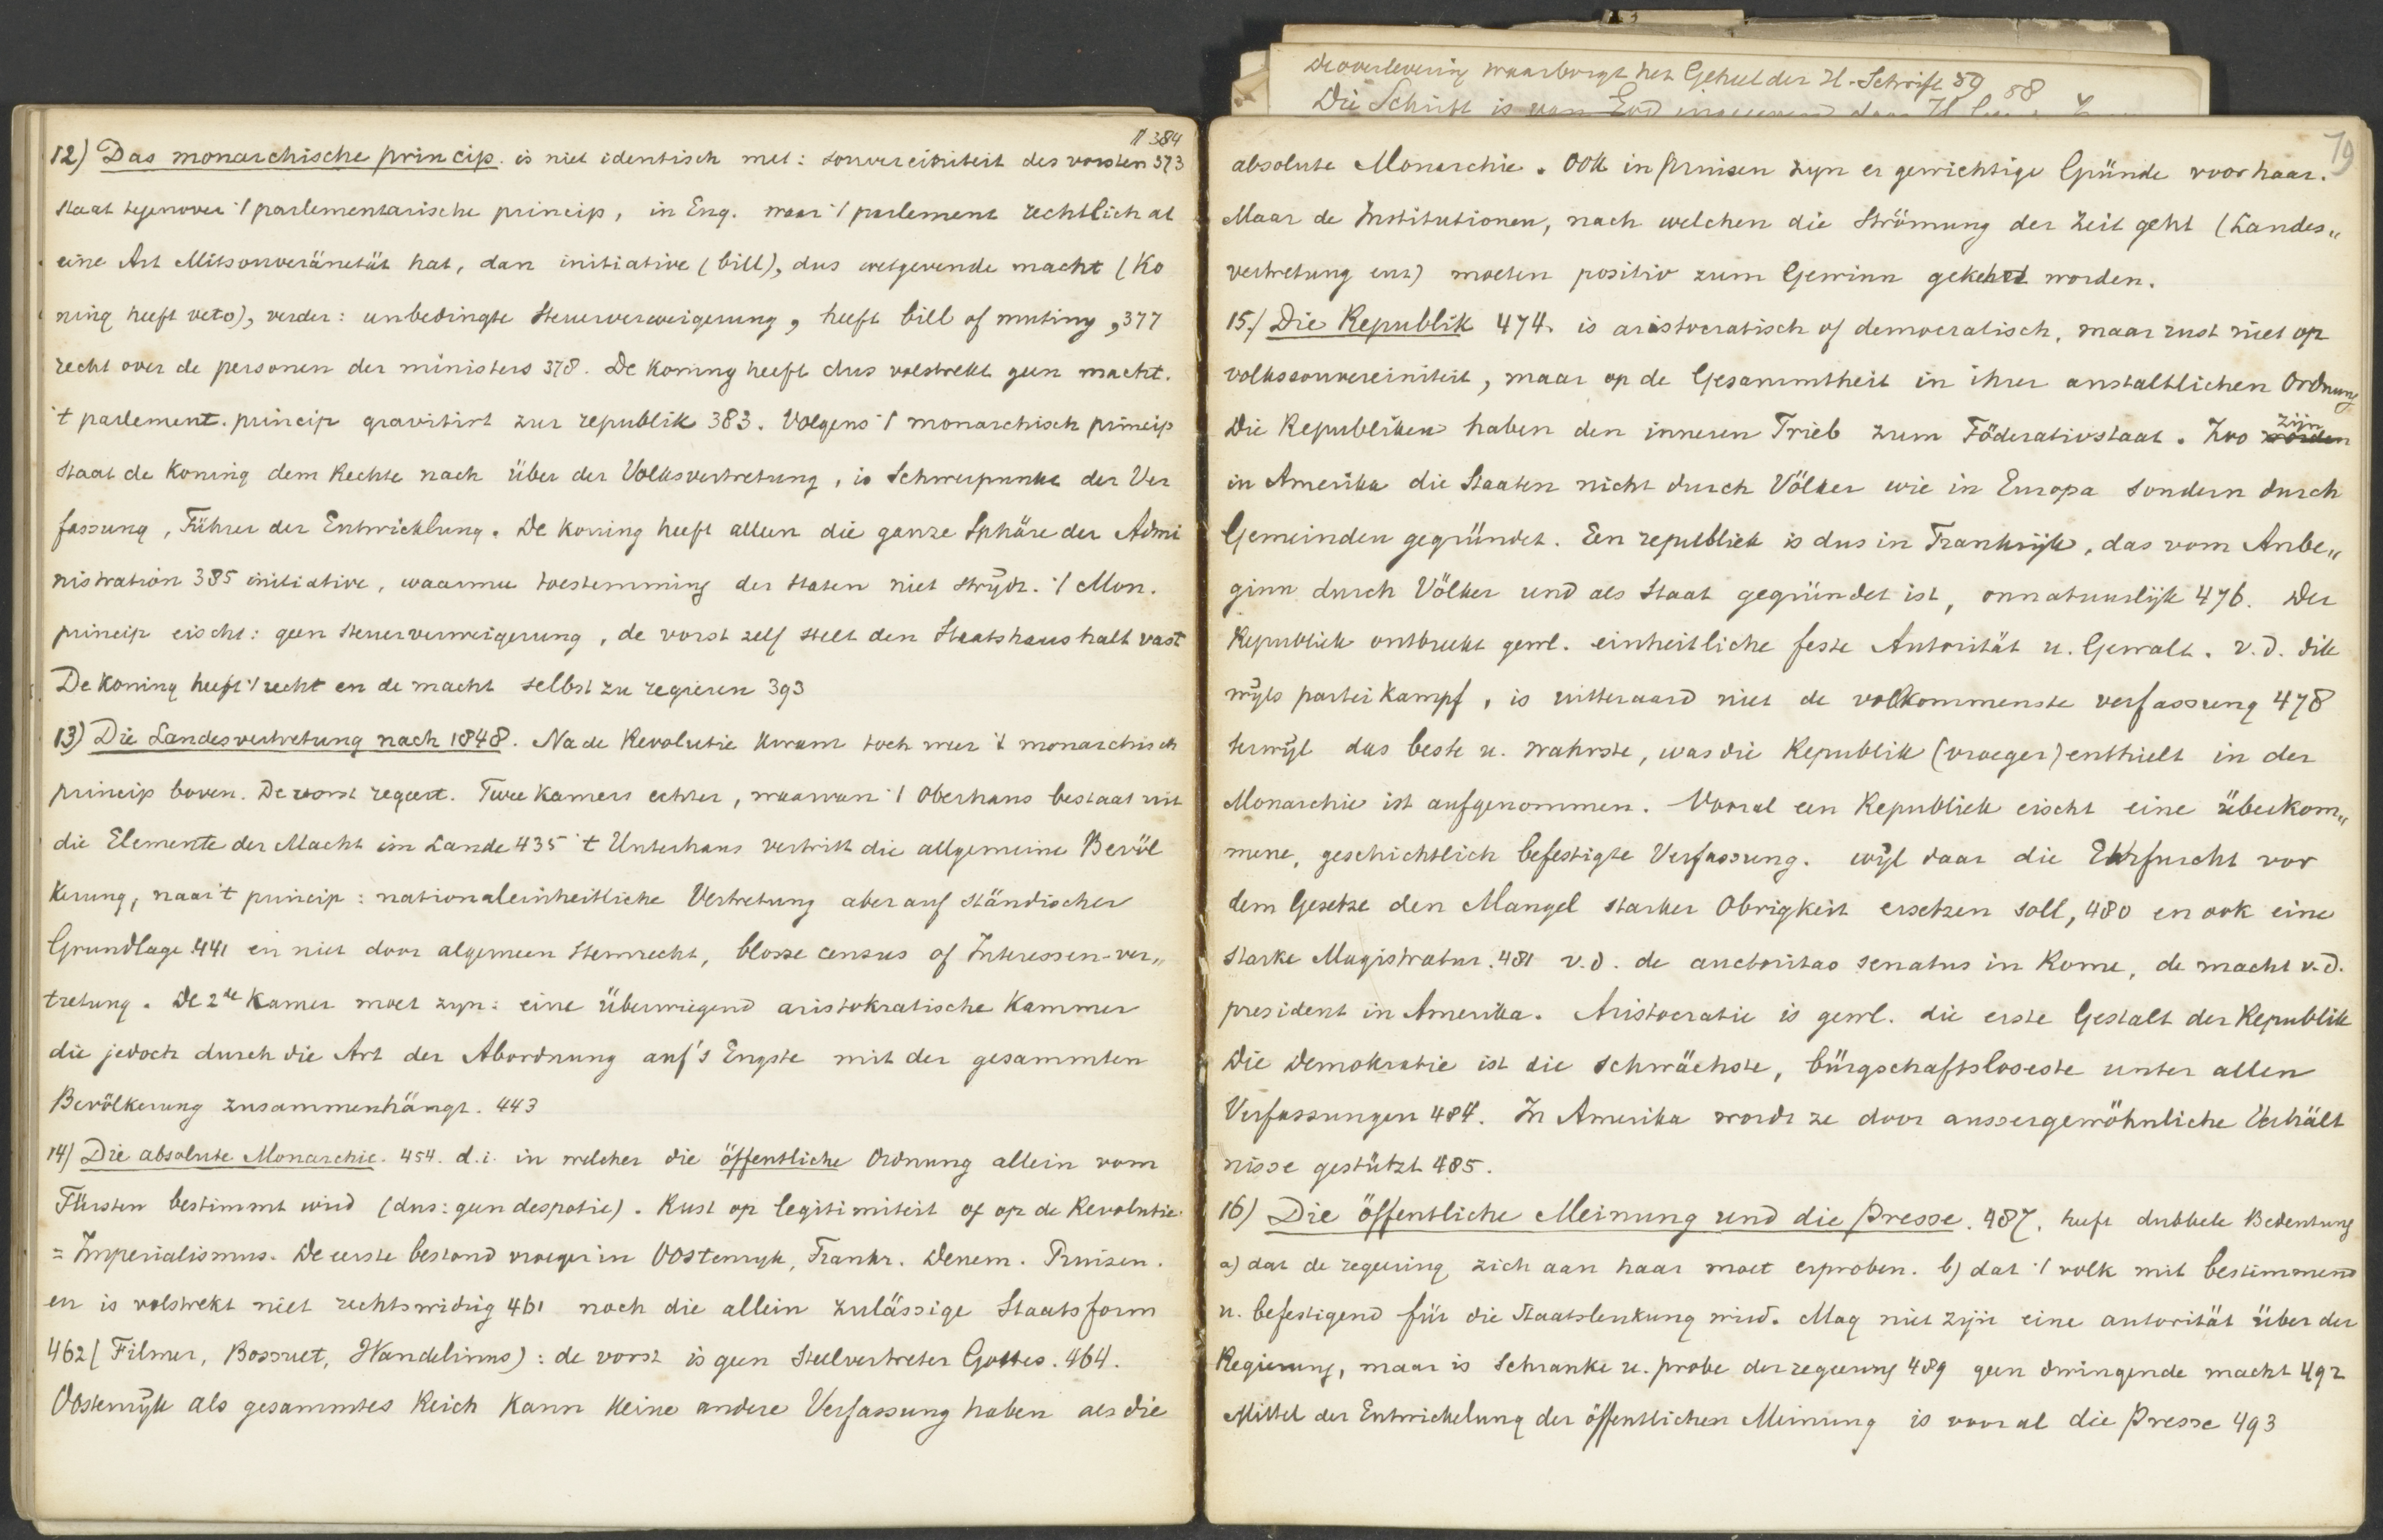 De overlevering waarborgt het Geheel der H. Schrift 59 58
Die Schrift is van God
79
11 384
12) Das monarchische princip. is niet identisch met: souvereiniteit des vorsten 373
staat tegenover 't parlementarische princip, in Eng. waar 't parlement rechtlich al
eine Art Mitsouveränetät hat, dan initiative (bill), dus wetgevende macht (Ko
ning heeft veto), verder: unbedingte Steuerverweigerung, heeft bill of mutiny, 377
recht over de personen der ministers 378. De Koning heeft dus volstrekt geen macht.
't parlement. princip gravitirt zur republik 383. Volgens 't monarchisch princip
staat de Koning dem Rechte nach über der Volksvertretung, is Schwerpunkt der Ver
fassung, Führer der Entwicklung. De Koning heeft alleen die ganze Sphäre der Admi
nistration 385 initiative, waarmee toestemming der Staten niet strydt. 't Mon.
princip eischt: geen Steuerverweigerung, de vorst zelf stelt den Staatshaushalt vast
De Koning heeft 't recht en de macht selbst zu regieren 393
13) Die Landesvertretung nach 1848. Na de Revolutie kwam toch weer 't monarchisch
princip boven. De vorst regeert. Twee Kamers echter, waarvan 't Oberhaus bestaat uit
die Elemente der Macht im Lande 435 't Unterhaus vertritt die allgemeine Bevöl
kerung, naar 't princip: nationaleinheitliche Vertretung aber auf ständischer
Grundlage 441 en niet door algemeen stemrecht, blosse census of Interessen-ver„
tretung. De 2de Kamer moet zyn: eine Überwiegend aristokratische Kammer
die jedoch durch die Art der Abordnung auf's Engste mit der gesammten
Bevölkerung zusammenhängt. 443
14) Die absolute Monarchie. 454. d.i. in welcher die öffentliche Ordnung allein vom
Fürsten bestimmt wird (dus: geen despotie). Rust op legitimiteit of op de Revolutie
= Imperialismus. De eerste bestond vroeger in Oostenryk, Frankr. Denem. Pruisen.
en is volstrekt niet rechtswidrig 461 noch die allein zulässige Staatsform
462 (Filmer, Bossuet, Wandelinus): de vorst is geen Stellvertreter Gottes. 464.
Oostenryk als gesammtes Reich kann keine andere Verfassung haben als die
absolute Monarchie. Ook in Pruisen zyn er gewichtige Gründe voor haar.
Maar de Institutionen, nach welchen die Strömung der Zeit geht (Landes„
vertretung enz) moeten positiv zum Gewinn gekehrt worden.
15) Die Republik 474. is aristocratisch of democratisch, maar rust niet op
volkssouvereiniteit, maar op de Gesammtheit in ihrer anstaltlichen Ordnung
Die Republiken haben den inneren Trieb zum Föderativstaat. Zoo worden zijn
in Amerika die Staaten nicht durch Völker wie in Europa sondern durch
Gemeinden gegründet. Een republiek is dus in Frankrijk, das vom Anbe„
ginn durch Völker und als Staat gegründet ist, onnatuurlijk 476. Der
Republiek ontbreekt gewl. einheitliche feste Autorität u. Gewalt. v.d. dik
wyls parteikampf, is uitteraard niet de volkommenste verfassung 478
terwyl das beste u. wahrste, was die Republik (vroeger) enthielt in der
Monarchie ist aufgenommen. Vooral een Republiek eischt eine überkom„
mene, geschichtlich befestigte Verfassung. wyl daar die Ehrfurcht vor
dem Gesetze den Mangel starker Obrigkeit ersetzen soll, 480 en ook eine
starke Magistratur. 481 v.d. de auctoritas senatus in Rome, de macht v.d.
president in Amerika. Aristocratie is gewl. die erste Gestalt der Republik
Die Demokratie ist die schwächste, bürgschaftsloseste unter allen
Verfassungen 484. In Amerika wordt ze door aussergewöhnliche Verhält
nisse gestützt 485.
16) Die öffentliche Meinung und die Presse. 487. heeft dubbele Bedeutung
a) dat de regering zich aan haar moet erproben. b) dat 't volk mit bestimmend
u. befestigend für die Staatslenkung wird. Mag niet zijn eine autorität über der
Regierung, maar is Schranke u. probe der regeering 489 geen dwingende macht 492
Mittel der Entwickelung der öffentlichen Meinung is vooral die Presse 493